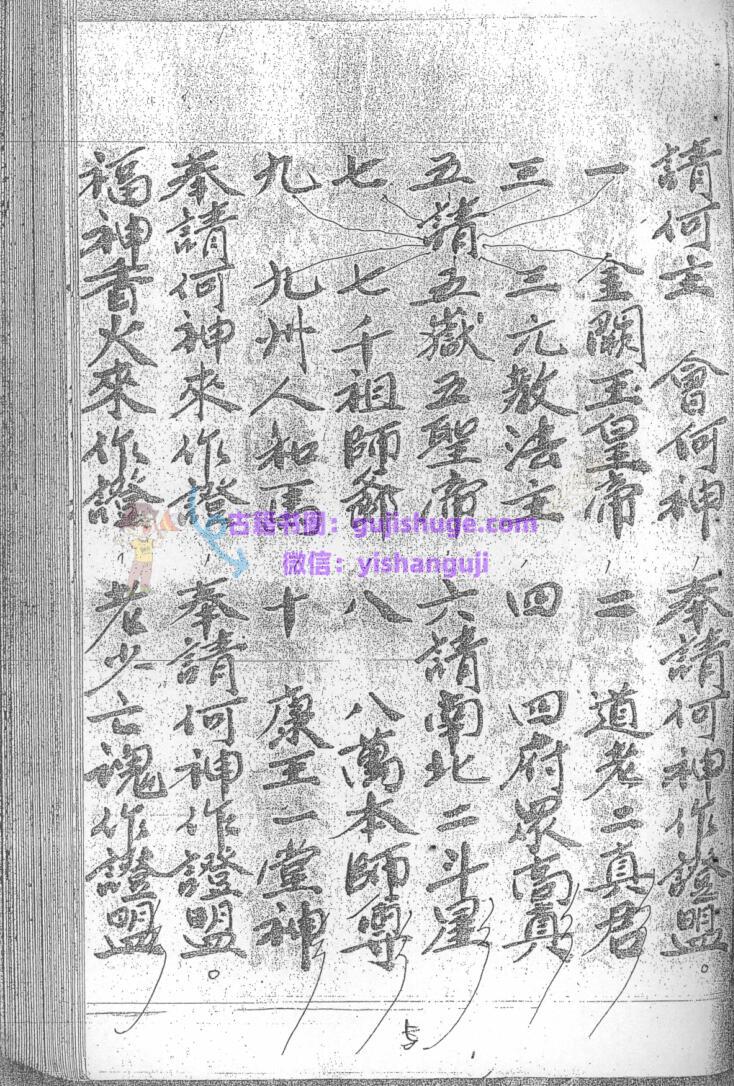 請何主 會何神 奉請何神作證盟。
一 金闕玉皇帝 二 道老二真君
三 三元教法主 四 四府眾高真
五請五嶽五聖帝 六請南北二斗星
七 七千祖師爺 八 八萬本師尊
九 九州人和馬 十 康王一堂神
奉請何神來作證 奉請何神作證盟。
福神香火來作證 老少亡魂作證盟
古籍书阁：gujishuge.com
微信：yishanguji
5